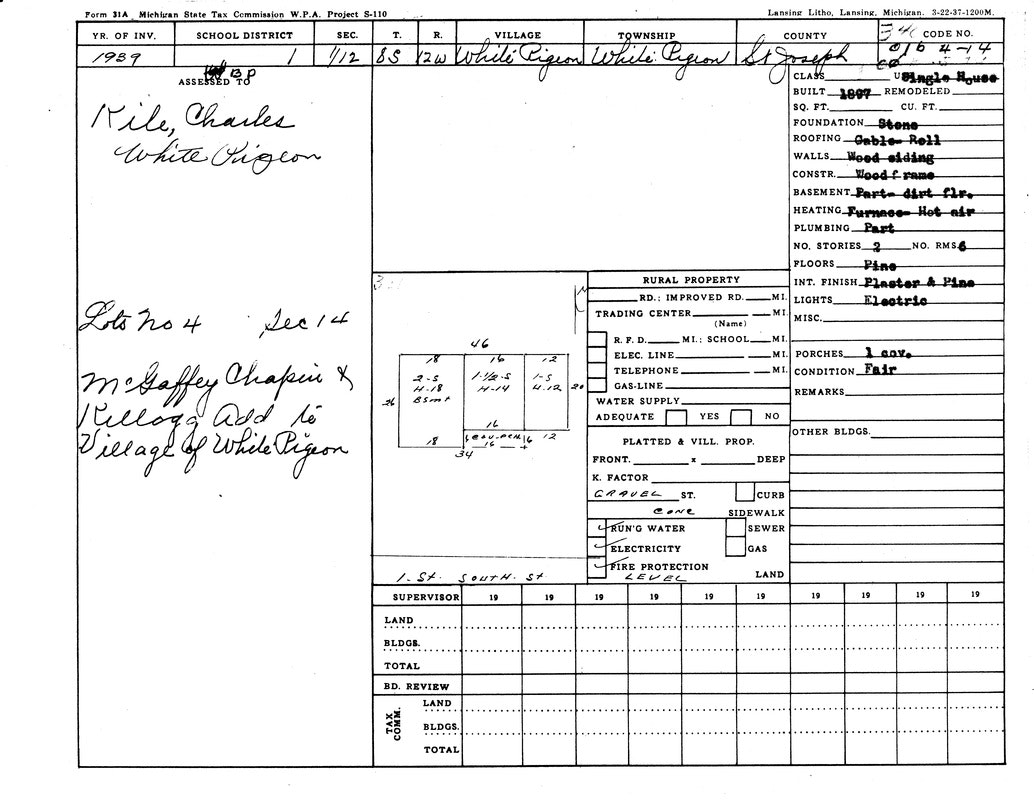 Form 31A Michigan State Tax Commission W.P.A. Project S-110
Lansing Litho, Lansing, Michigan. 3-22-37-1200M.
YR. OF INV. SCHOOL DISTRICT SEC. T. R. VILLAGE TOWNSHIP COUNTY CODE NO.
1939 1 1/12 8S 12W White Pigeon White Pigeon St Joseph 016 4-14
ASSESSED TO
Kile, Charles
White Pigeon
Lots No 4 Sec 14
McGaffey Chapin &
Killogg Add to
Village of White Pigeon
46
18 16 12
2-S 1-1/2-S 1-S
H-18 H-14 H-12
Bsmt
26 20
16
18 COV-PCH 6 12
16
34
1. St. SOUTH. St
RURAL PROPERTY
RD.; IMPROVED RD. MI.
TRADING CENTER MI.
(Name)
R. F. D. MI.; SCHOOL MI.
ELEC. LINE MI.
TELEPHONE MI.
GAS-LINE
WATER SUPPLY
ADEQUATE YES NO
PLATTED & VILL. PROP.
FRONT. x DEEP
K. FACTOR
GRAVEL ST. CURB
CONC SIDEWALK
RUN'G WATER SEWER
ELECTRICITY GAS
FIRE PROTECTION
LEVEL LAND
CLASS Single House
BUILT 1897 REMODELED
SQ. FT. CU. FT.
FOUNDATION Stone
ROOFING Gable- Roll
WALLS Wood siding
CONSTR. Wood frame
BASEMENT Part- dirt flr.
HEATING Furnace- Hot air
PLUMBING Part
NO. STORIES 2 NO. RMS 6
FLOORS Pine
INT. FINISH Plaster & Pine
LIGHTS Electric
MISC.
PORCHES 1 cov.
CONDITION Fair
REMARKS
OTHER BLDGS.
SUPERVISOR 19 19 19 19 19 19 19 19 19 19
LAND
BLDGS.
TOTAL
BD. REVIEW
TAX COMM.
LAND
BLDGS.
TOTAL